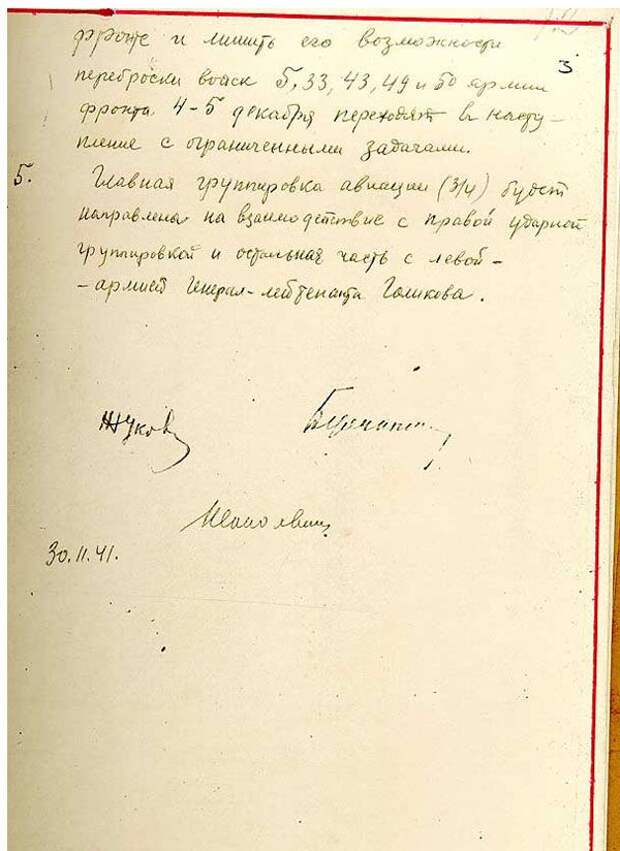 3
фронте и лишить его возможности
переброски войск 5, 33, 43, 49 и 50 армии
фронта 4-5 декабря переходят в насту-
пление с ограниченными задачами.
5. Главная группировка авиации (3/4) будет
направлена на взаимодствие с правой ударной
группировкой и остальная часть с левой-
-армией Генерал-лейтенанта Голикова.
Жуков
30.11.41.